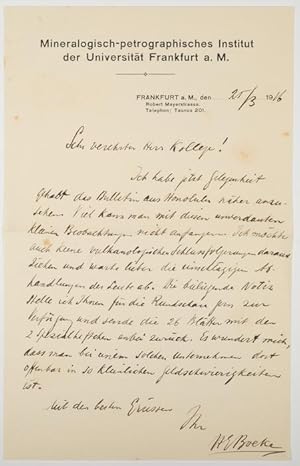 Mineralogisch-petrographisches Institut
der Universität Frankfurt a. M.
FRANKFURT a. M., den 25/3 1916
Robert Mayerstrasse.
Telephon: Taunus 201.
Sehr verehrter Herr Kollege!
Ich habe jetzt Gelegenheit
gehabt das Bulletin aus Honolulu näher anzu-
sehen. Viel kann man mit diesen unverdauten
kleinen Beobachtungen nicht anfangen. Ich möchte
auch keine vulkanologischen Schlussfolgerungen daraus
ziehen und warte lieber die einschlägigen Ab-
handlungen der Leute ab. Die beiliegende Notiz
stelle ich Ihnen für die Rundschau gern zur
Verfügung und sende die 26 Blätter mit den
2 Spezialheftchen anbei zurück. Es wundert mich,
dass man bei einem solchen Unternehmen dort
offenbar in so kleinlichen Geldschwierigkeiten
ist.
Mit den besten Grüssen
Ihr
HE Boeke